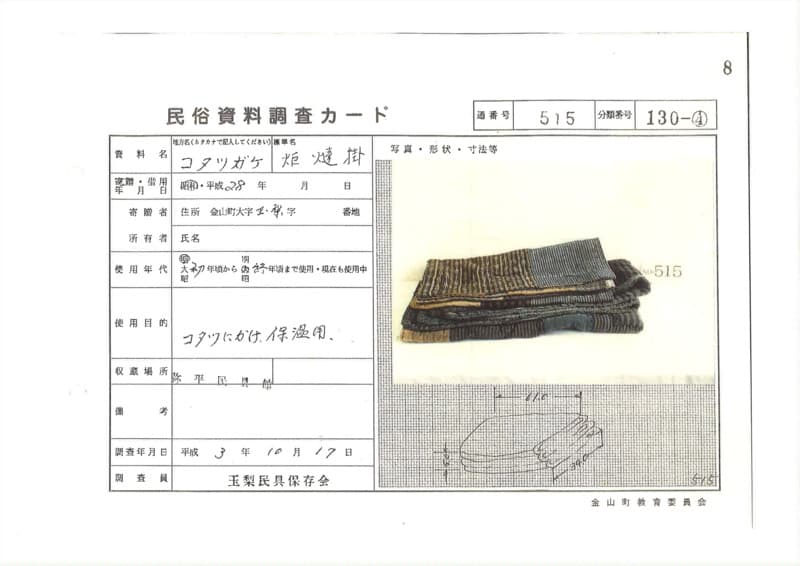 8
民俗資料調査カード
通番号 515 分類番号 130-④
資料名 地方名(カタカナで記入してください) コタツガケ 標準名 炬燵掛
寄贈・借用年月日 昭和・平成 28 年 月 日
寄贈者 住所 金山町大字玉梨字 番地
所有者 氏名
使用年代 明 大 昭 初年頃から 明 大 昭 終年頃まで使用・現在も使用中
使用目的 コタツにかけ、保温用、
収蔵場所 弥平民具館
備考
調査年月日 平成 3 年 10 月 17 日
調査員 玉梨民具保存会
写真・形状・寸法等
NO 515
61.0
39.0
515
金山町教育委員会